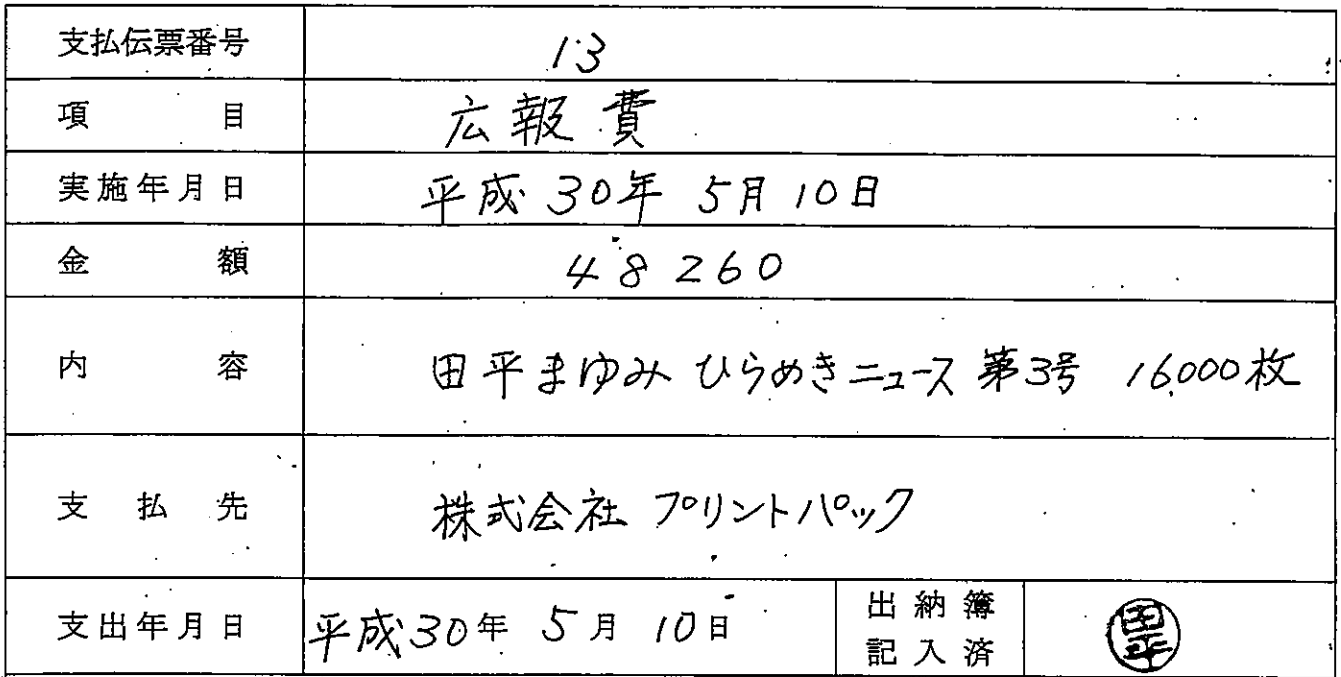 支払伝票番号 13
項目 広報費
実施年月日 平成30年 5月10日
金額 48260
内容 田平まゆみ ひらめきニュース 第3号 16,000枚
支払先 株式会社 プリントパック
支出年月日 平成30年 5月 10日 出納簿
記入済 田平